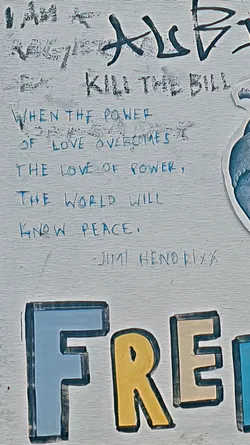 I AM
KILL THE BILL
WHEN THE POWER
OF LOVE OVERCOMES
THE LOVE OF POWER,
THE WORLD WILL
KNOW PEACE.
-JIMI HENDRIXX
FRE